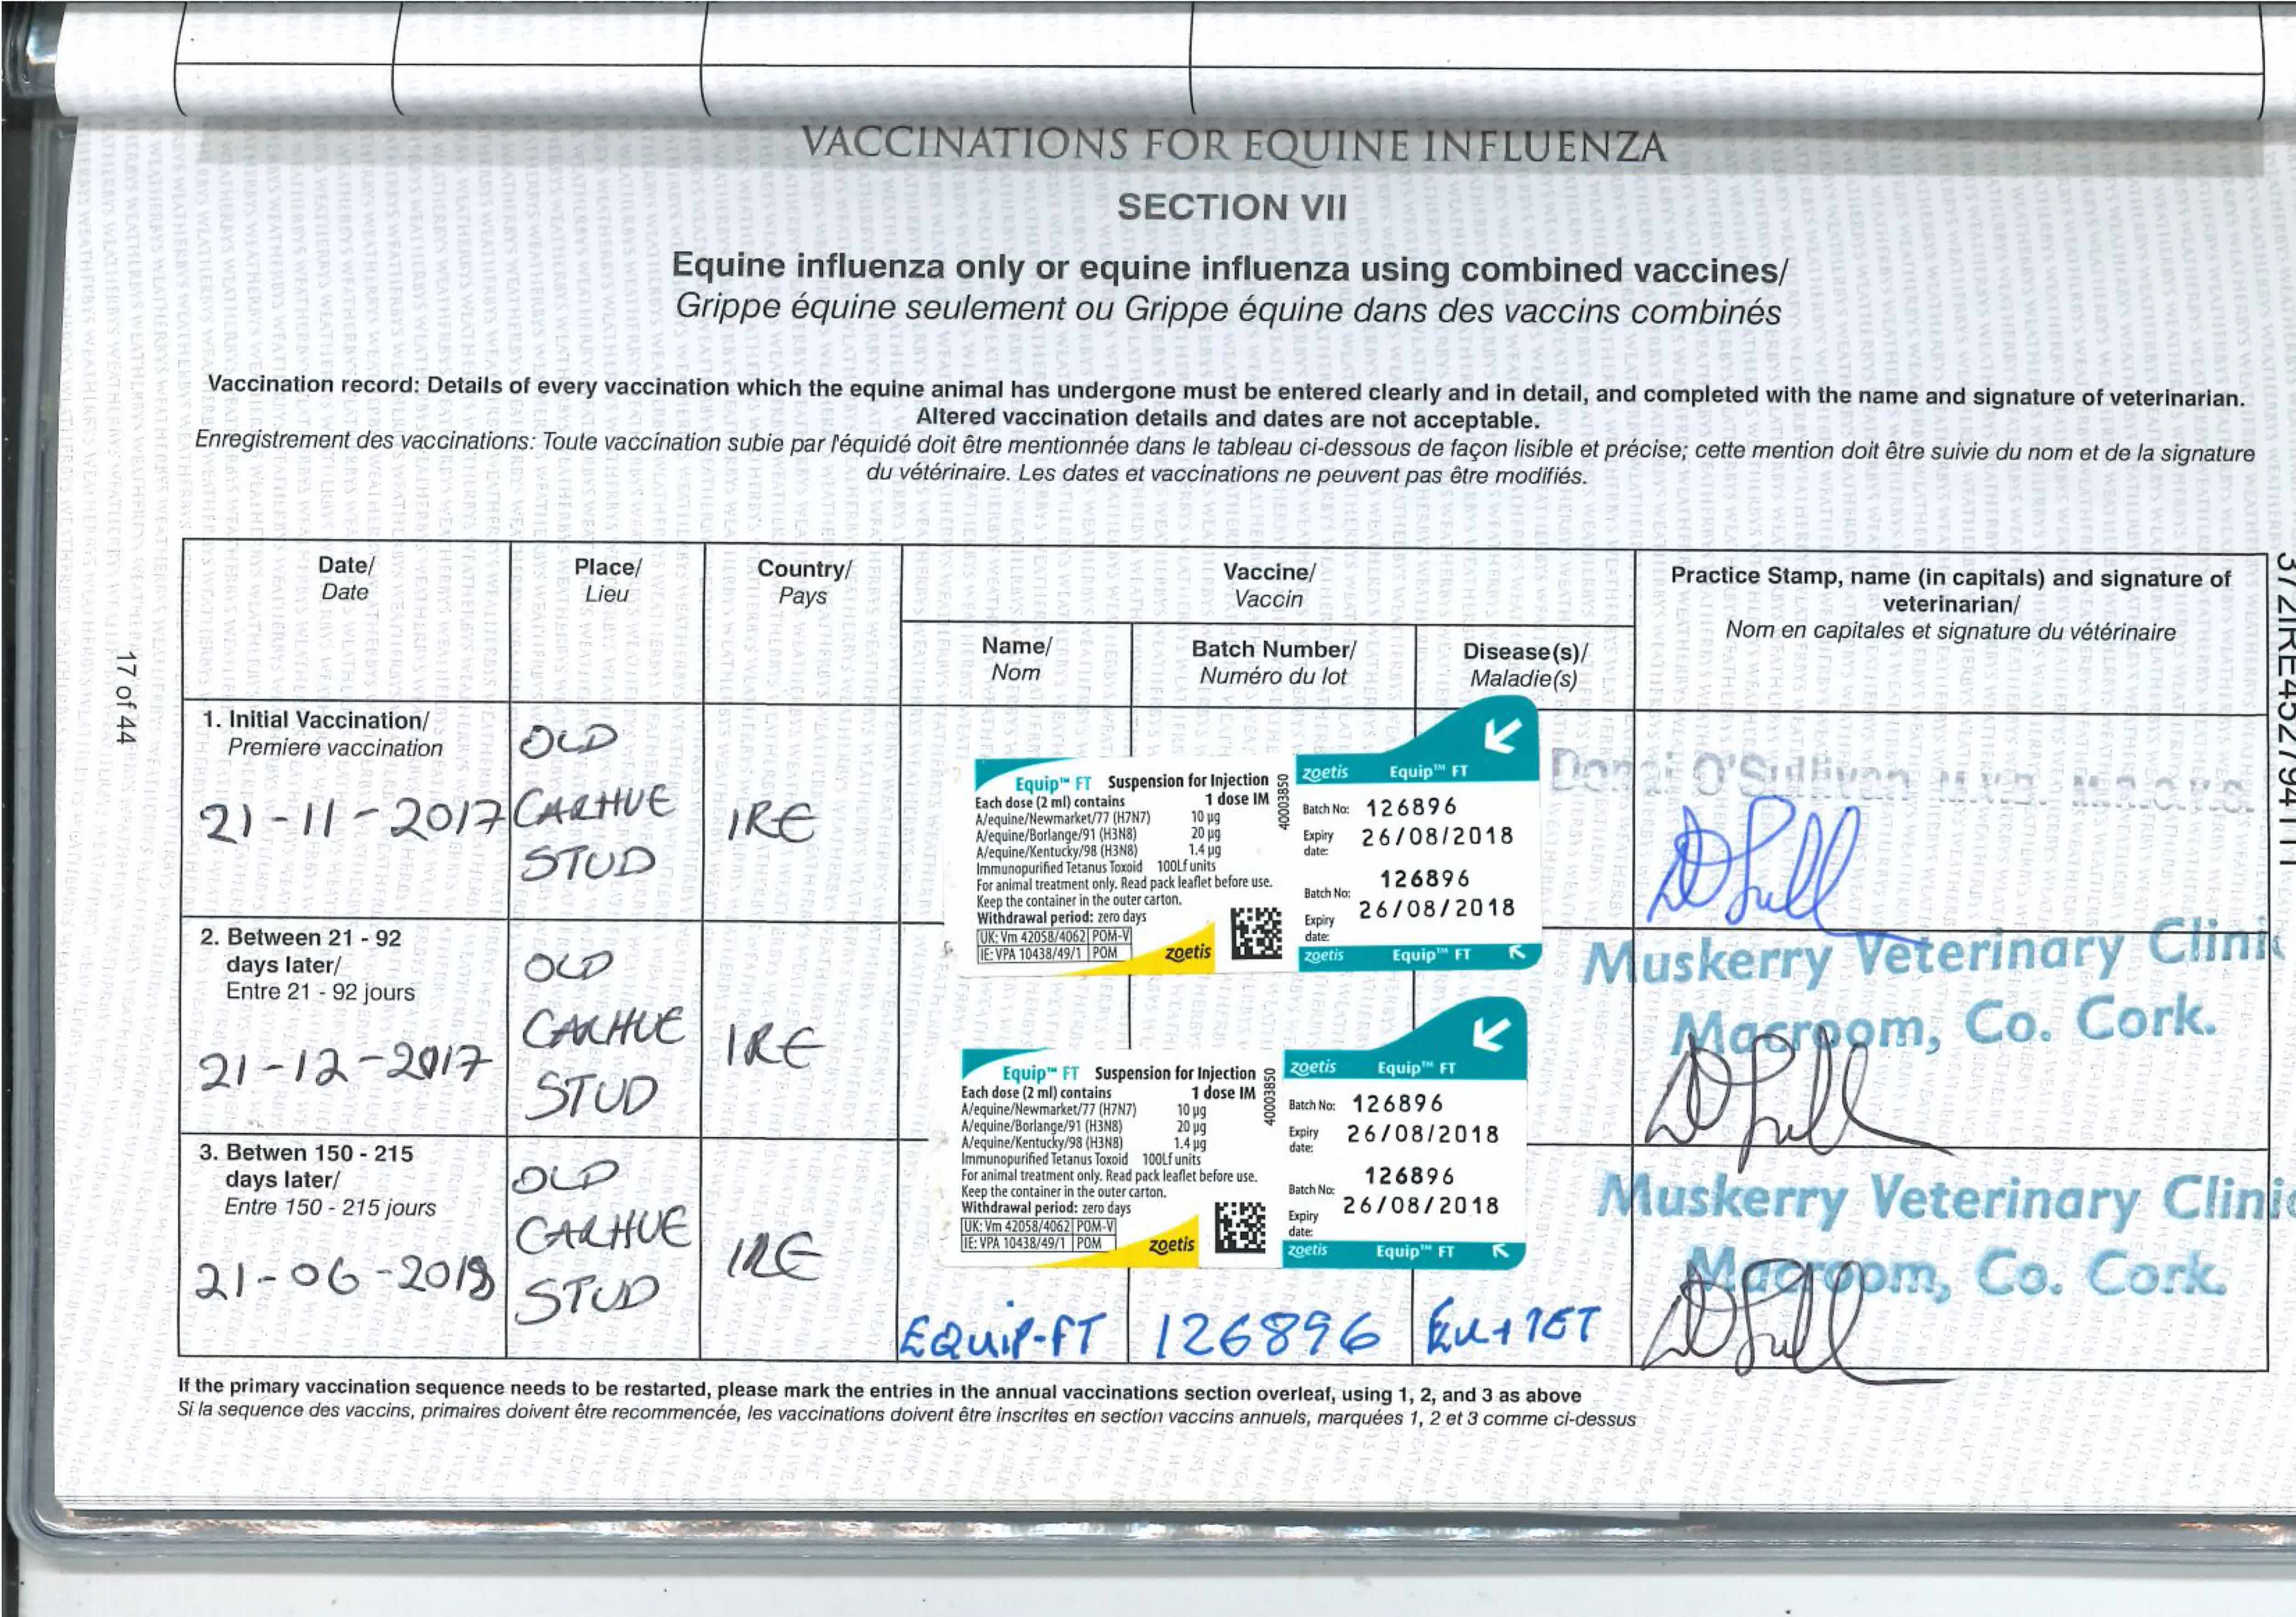 VACCINATIONS FOR EQUINE INFLUENZA
SECTION VII
Equine influenza only or equine influenza using combined vaccines/
Grippe équine seulement ou Grippe équine dans des vaccins combinés
Vaccination record: Details of every vaccination which the equine animal has undergone must be entered clearly and in detail, and completed with the name and signature of veterinarian.
Altered vaccination details and dates are not acceptable.
Enregistrement des vaccinations: Toute vaccination subie par l'équidé doit être mentionnée dans le tableau ci-dessous de façon lisible et précise; cette mention doit être suivie du nom et de la signature
du vétérinaire. Les dates et vaccinations ne peuvent pas être modifiés.
Date/
Date
Place/
Lieu
Country/
Pays
Vaccine/
Vaccin
Practice Stamp, name (in capitals) and signature of
veterinarian/
Nom en capitales et signature du vétérinaire
Name/
Nom
Batch Number/
Numéro du lot
Disease(s)/
Maladie(s)
1. Initial Vaccination/
Premiere vaccination
21-11-2017
OLD
CARHUE
STUD
IRE
Equip™ FT Suspension for Injection
Each dose (2 ml) contains 1 dose IM
A/equine/Newmarket/77 (H7N7) 10 µg
A/equine/Borlange/91 (H3N8) 20 µg
A/equine/Kentucky/98 (H3N8) 1.4 µg
Immunopurified Tetanus Toxoid 100Lf units
For animal treatment only. Read pack leaflet before use.
Keep the container in the outer carton.
Withdrawal period: zero days
UK: Vm 42058/4062 POM-V
IE: VPA 10438/49/1 POM
zoetis
40003850
zoetis Equip™ FT
Batch No: 126896
Expiry date: 26/08/2018
Batch No: 126896
Expiry date: 26/08/2018
zoetis Equip™ FT
Donal O'Sullivan M.V.B. M.R.C.V.S.
2. Between 21 - 92
days later/
Entre 21 - 92 jours
21-12-2017
OLD
CARHUE
STUD
IRE
Equip™ FT Suspension for Injection
Each dose (2 ml) contains 1 dose IM
A/equine/Newmarket/77 (H7N7) 10 µg
A/equine/Borlange/91 (H3N8) 20 µg
A/equine/Kentucky/98 (H3N8) 1.4 µg
Immunopurified Tetanus Toxoid 100Lf units
For animal treatment only. Read pack leaflet before use.
Keep the container in the outer carton.
Withdrawal period: zero days
UK: Vm 42058/4062 POM-V
IE: VPA 10438/49/1 POM
zoetis
40003850
zoetis Equip™ FT
Batch No: 126896
Expiry date: 26/08/2018
Batch No: 126896
Expiry date: 26/08/2018
zoetis Equip™ FT
Muskerry Veterinary Clinic
Macroom, Co. Cork.
3. Betwen 150 - 215
days later/
Entre 150 - 215 jours
21-06-2018
OLD
CARHUE
STUD
IRE
EQUIP-FT
126896
+TET
Muskerry Veterinary Clinic
Macroom, Co. Cork.
If the primary vaccination sequence needs to be restarted, please mark the entries in the annual vaccinations section overleaf, using 1, 2, and 3 as above
Si la sequence des vaccins, primaires doivent être recommencée, les vaccinations doivent être inscrites en section vaccins annuels, marquées 1, 2 et 3 comme ci-dessus
17 of 44